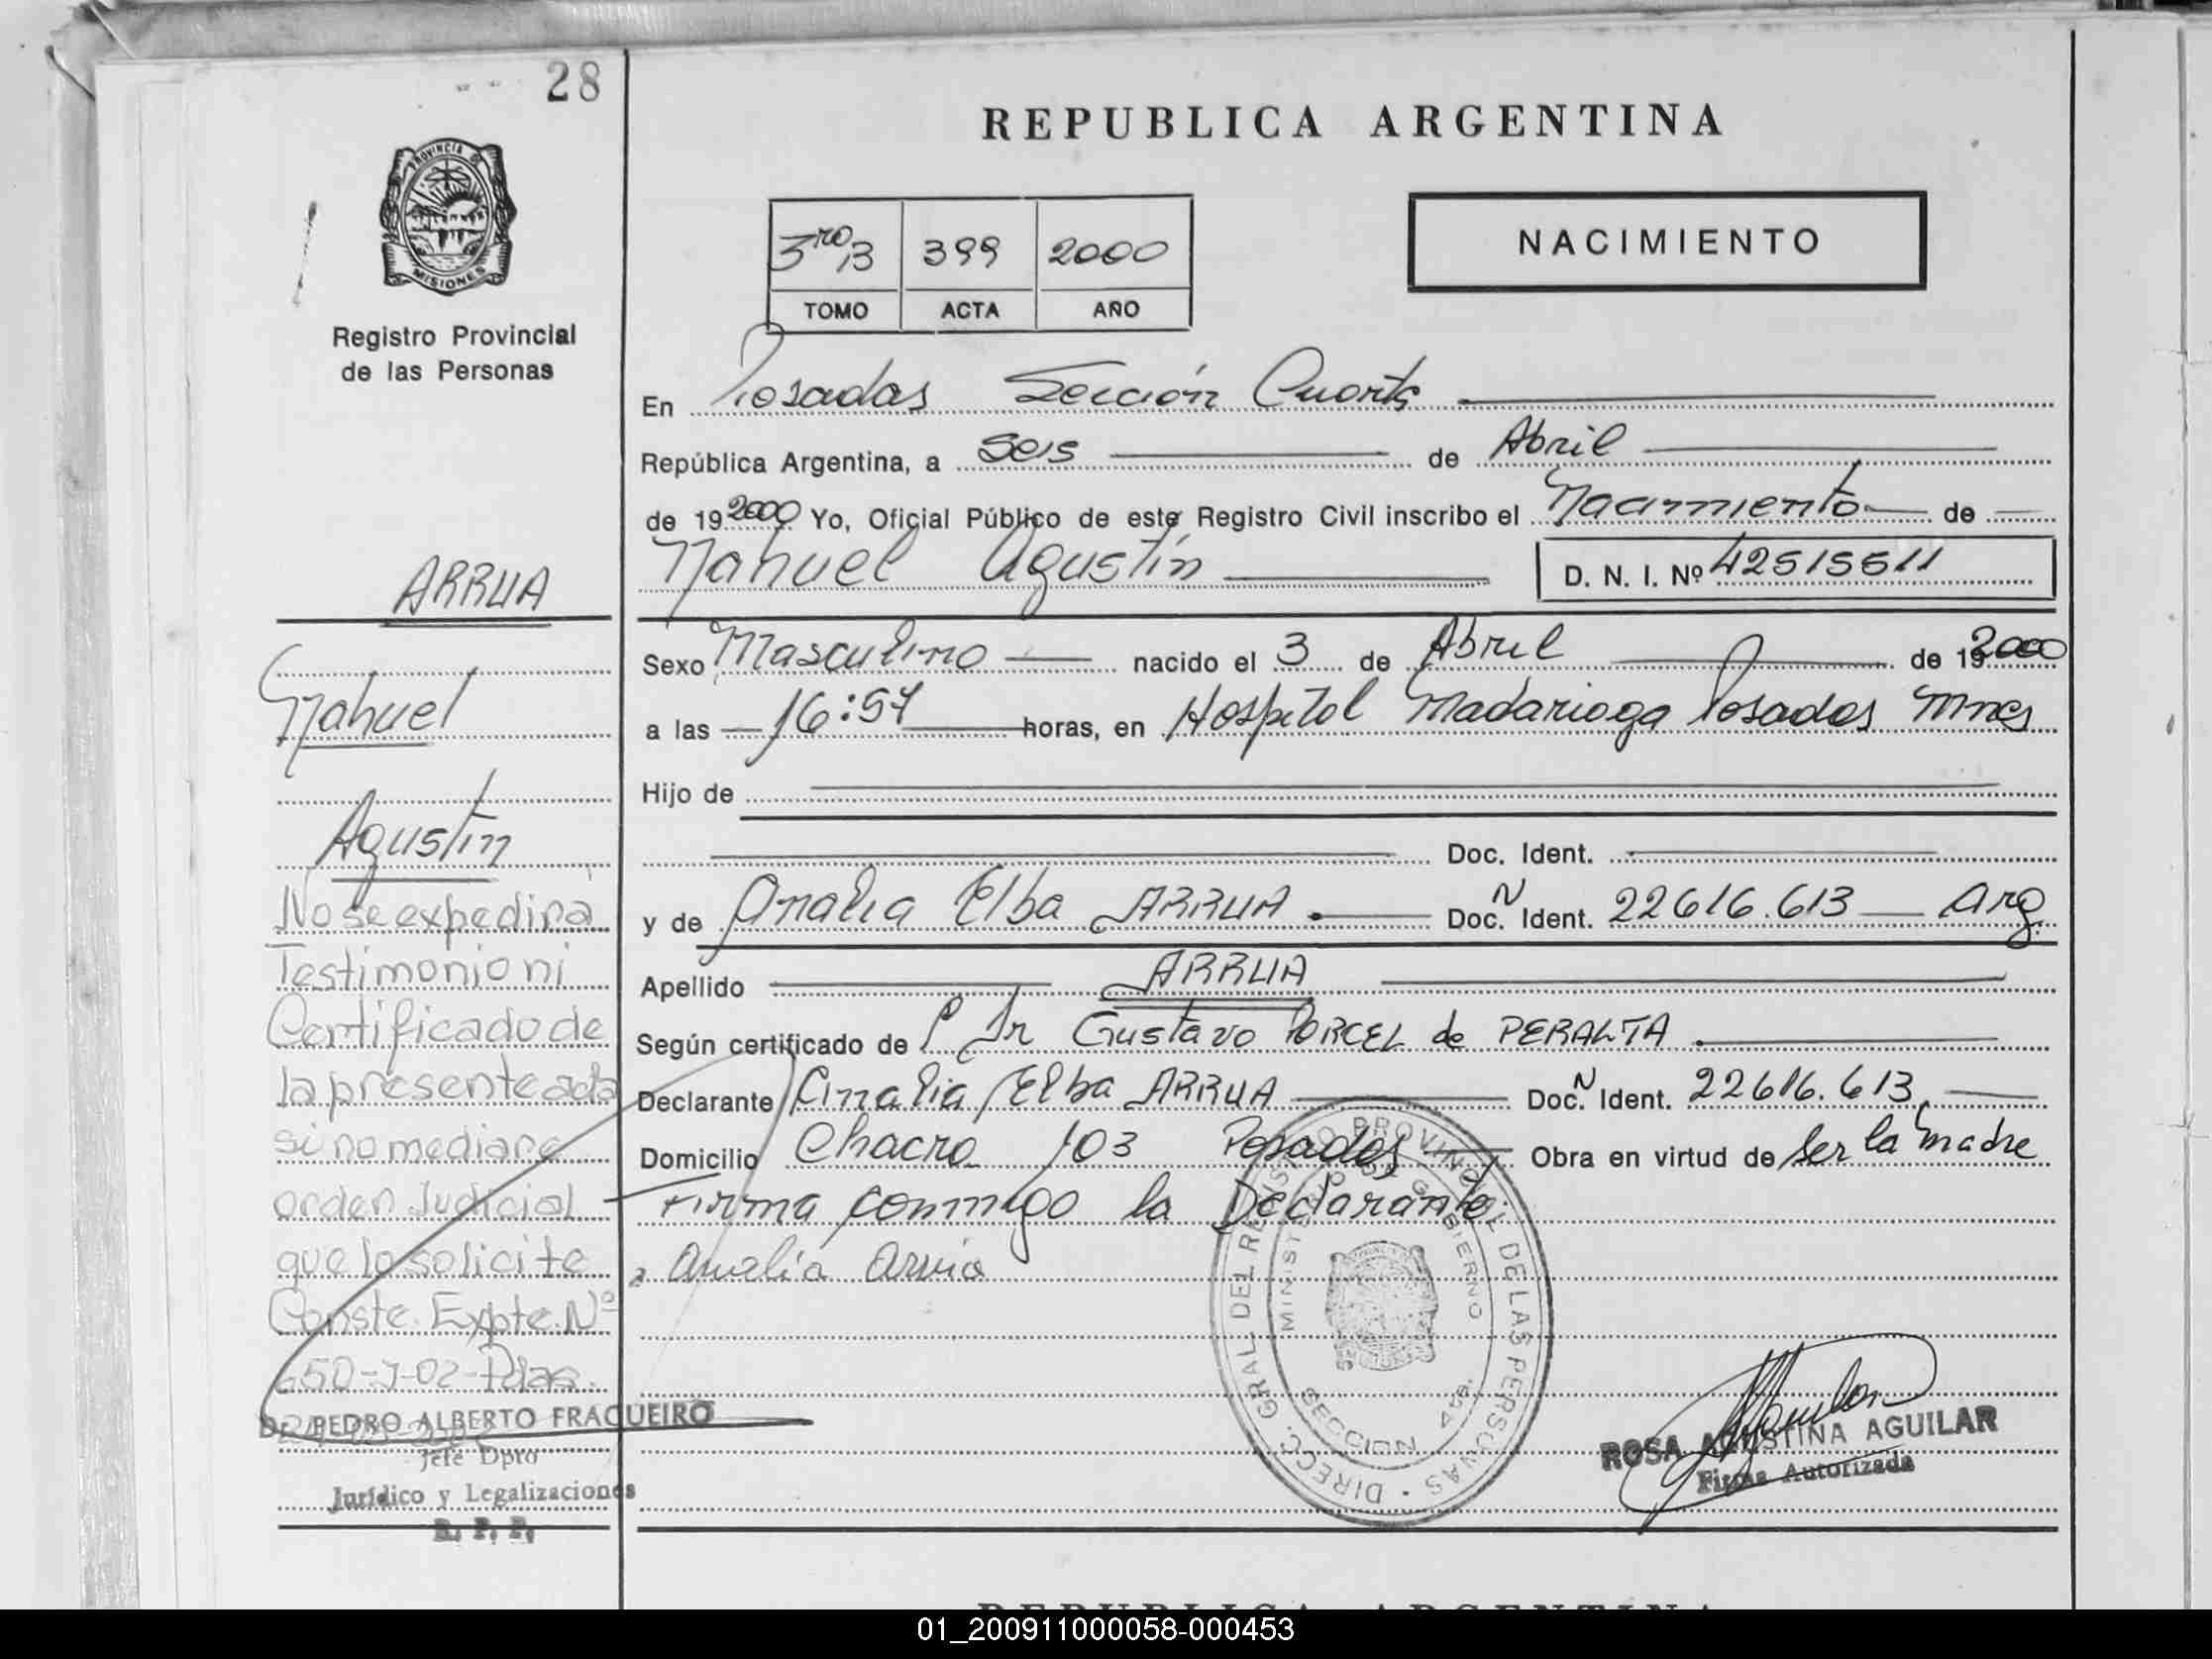 28
REPUBLICA ARGENTINA
PROVINCIA DE
MISIONES
Registro Provincial
de las Personas
3ro B 399 2000
TOMO ACTA AÑO
NACIMIENTO
En Posadas Sección Cuarta
República Argentina, a Seis de Abril
de 19 2000 Yo, Oficial Público de este Registro Civil inscribo el Nacimiento de
Nahuel Agustín D. N. I. Nº 42515511
Sexo Masculino nacido el 3 de Abril de 19 2000
a las 16:57 horas, en Hospital Madariaga Posadas Mnes
Hijo de
Doc. Ident.
y de Analia Elba ARRUA Doc. N Ident. 22616.613 Arg.
Apellido ARRUA
Según certificado de P Dr Gustavo PORCEL de PERALTA
Declarante Analia Elba ARRUA Doc. N Ident. 22616.613
Domicilio Chacra 103 Posadas Obra en virtud de Ser la Madre
Firma conmigo la Declarante
Analia Arrua
ARRUA
Nahuel
Agustín
No se expedirá
Testimonio ni
Certificado de
la presente acta
si no mediare
orden Judicial
que lo solicite
Conste. Expte. Nº
650-J-02-Pdas.
Dr. PEDRO ALBERTO FRAQUEIRO
Jefe Dpto
Jurídico y Legalizaciones
R. P. P.
DIRECC. GRAL DEL REGISTRO PROVINCIAL DE LAS PERSONAS
MINISTERIO DE GOBIERNO
SECCION 4ta.
ROSA AGUSTINA AGUILAR
Firma Autorizada
REPUBLICA ARGENTINA
01_200911000058-000453